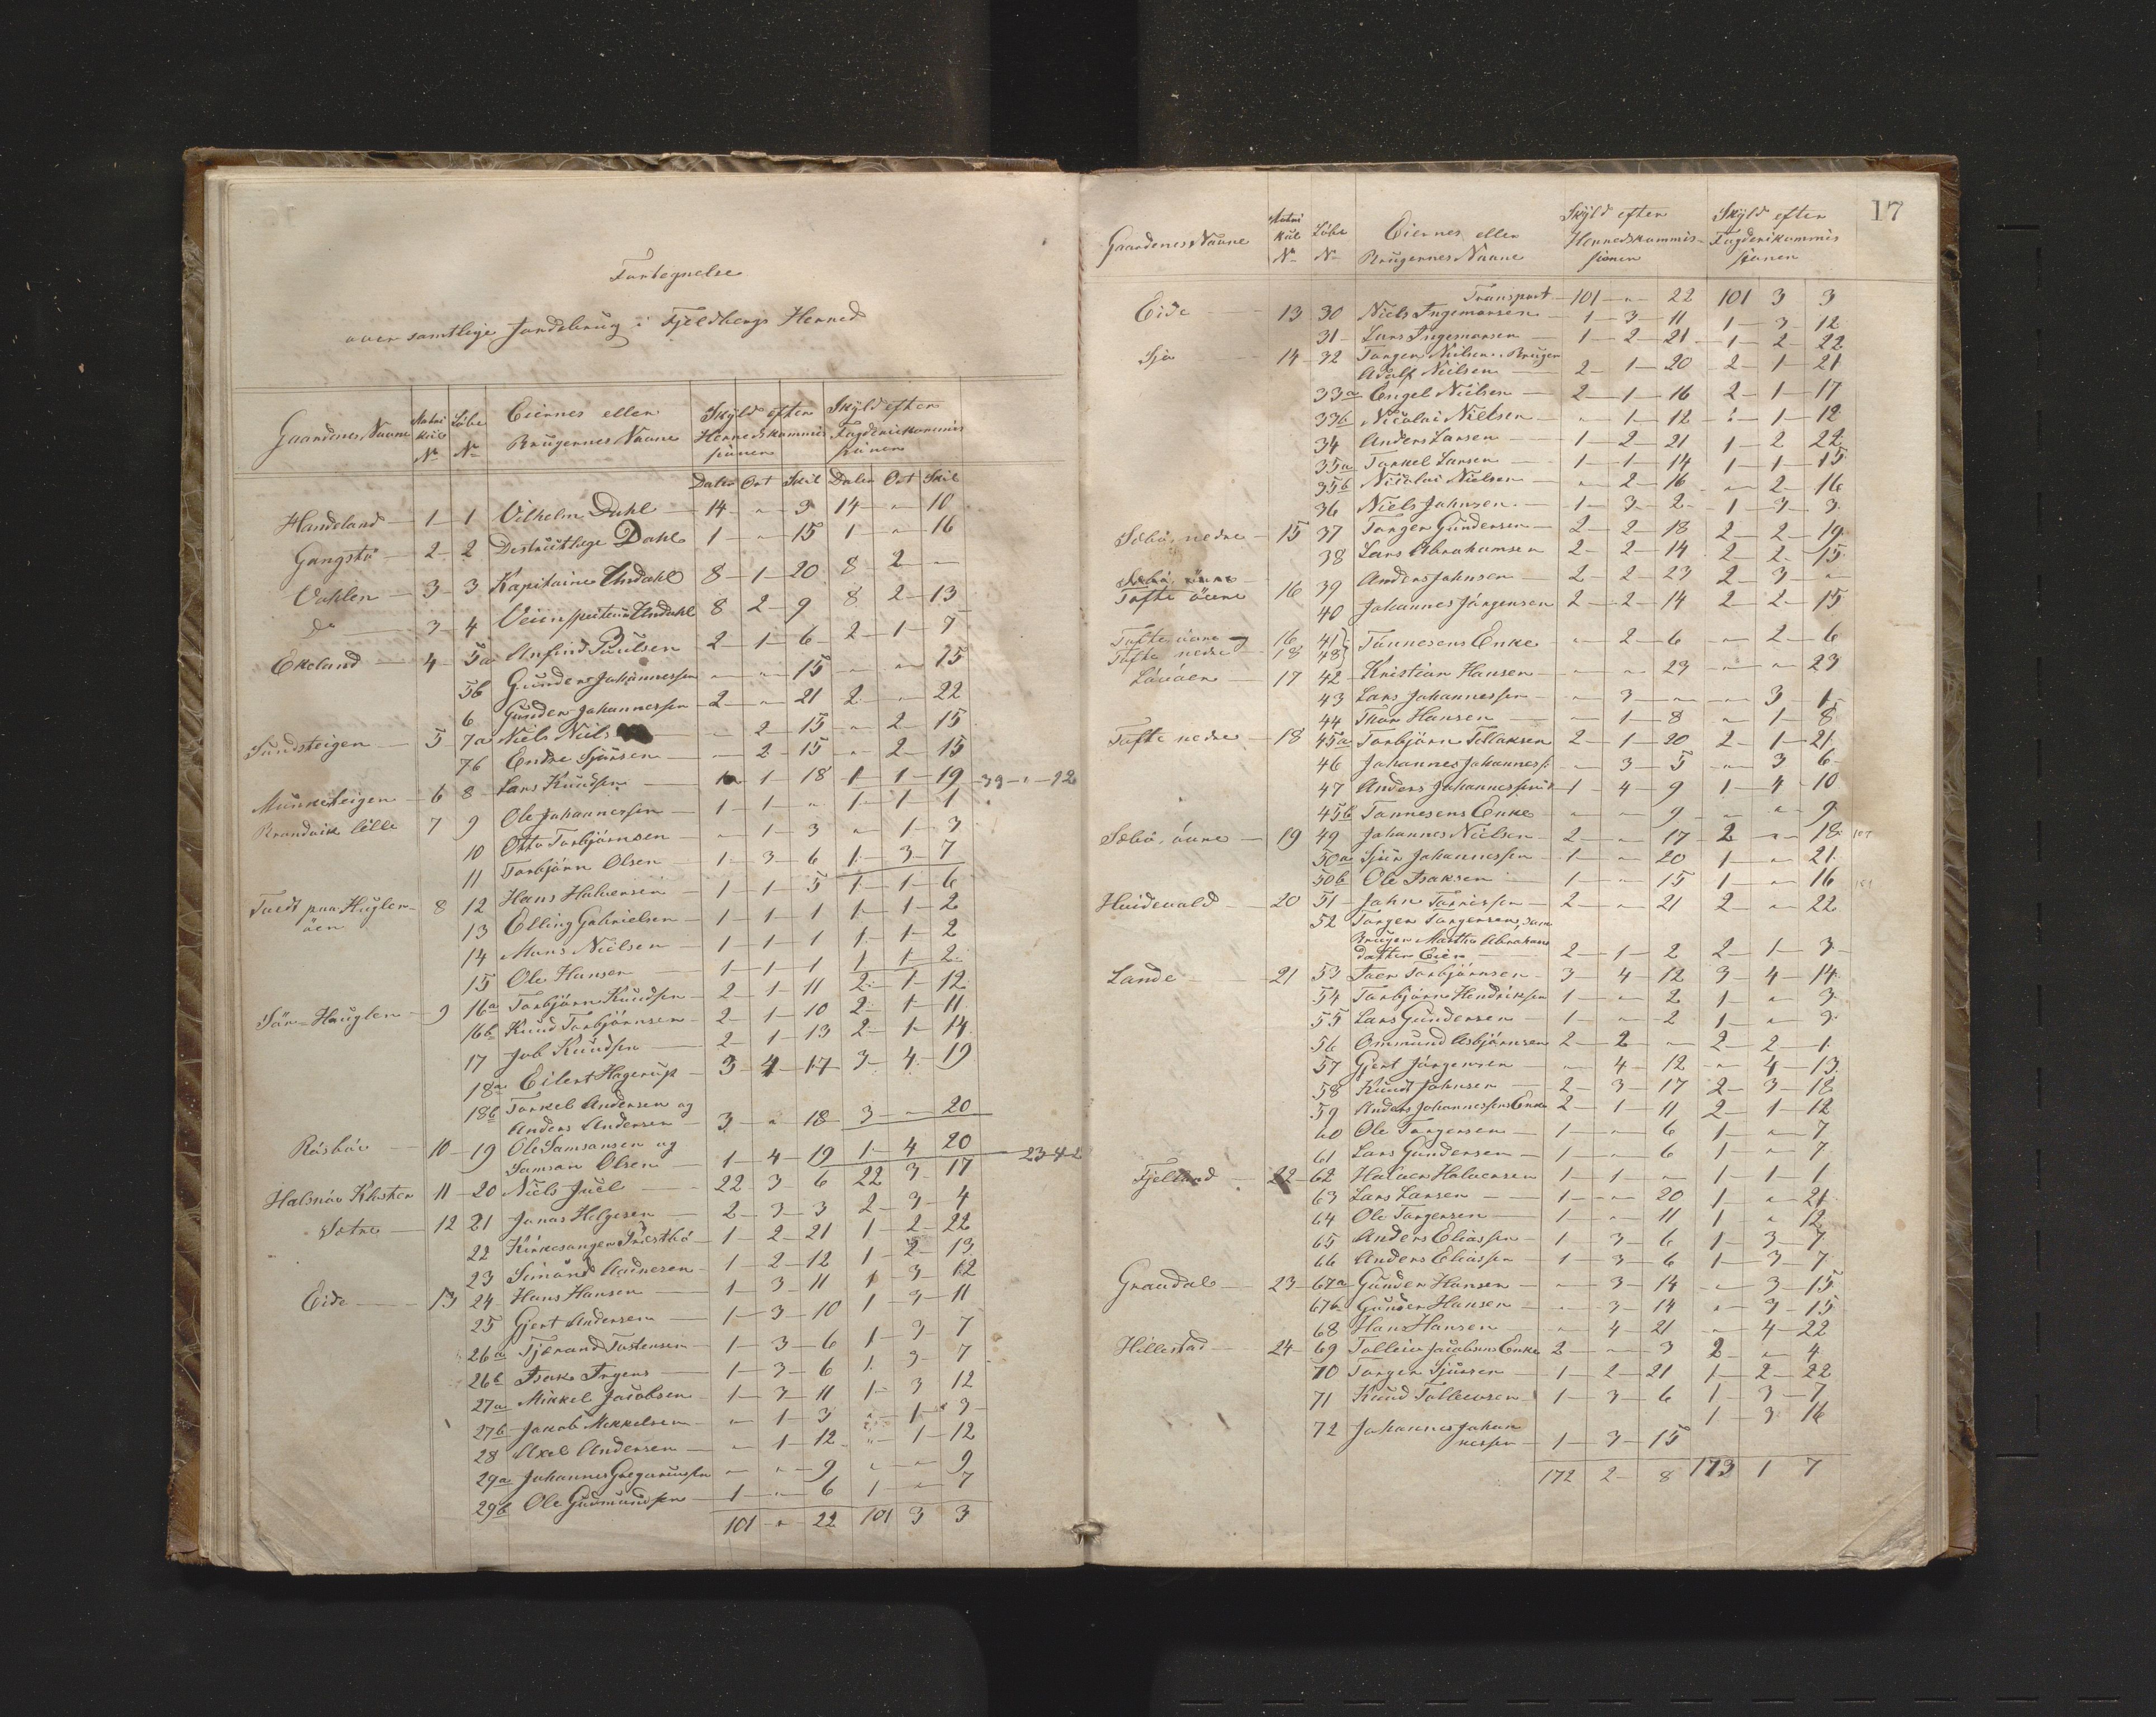 Fortegnelse
over samtlige Jordebrug i Fjeldbergs Herred
Gaardenes Navne Matri kül No Löbe No Eiernes eller Brugernes Navne Skyld efter Herredskommis sionen Skyld efter Fogderiekommis sionen
Daler Ort Skil Daler Ort Skil
Handeland 1 1 Vilhelm Dahl 14 " 9 14 " 10
Gangstö 2 2 Dahl 1 " 15 1 " 16
Vahlen 3 3 Kapitaine Undahl 8 1 20 8 2 —
do 3 4 Undahl 8 2 9 8 2 13
Ekeland 4 5a Anfind Paulsen 2 1 6 2 1 7
5b Gunder Johannessen " " 15 " " 15
6 Gunder Johannessen 2 " 21 2 " 22
Sundsteigen 5 7a Niels Niels " 2 15 " 2 15
7b Endre Sjursen " 2 15 " 2 15
Munketeigen 6 8 Lars Knudsen 1 1 18 1 1 19 39 " 12
Brandvik lille 7 9 Ole Johannessen 1 1 " 1 1 1
10 Otto Torbjörnsen " 1 3 " 1 3
11 Torbjörn Olsen 1 3 6 1 3 7
Tvedt paa Huglen öen 8 12 Hans Halversen 1 1 5 1 1 6
13 Elling Gabrielsen 1 1 1 1 1 2
14 Mons Nielsen 1 1 1 1 1 2
15 Ole Hansen 1 1 1 1 1 2
Sör-Huglen 9 16a Torbjörn Knudsen 2 1 11 2 1 12
16b Knud Torbjörnsen 2 1 10 2 1 11
17 Job Knudsen 2 1 13 2 1 14
18a Eilert Hagerup 3 4 17 3 4 19
18b Torkel Andersen og
Anders Andersen 3 " 18 3 " 20
Rösböe 10 19 Ole Samsonsen og
Samson Olsen 1 4 19 1 4 20 23 4 2
Halsnöe Kloster 11 20 Niels Juel 22 3 6 22 3 17
Sætre 12 21 Jonas Helgesen 2 3 3 2 3 4
22 Kirkesanger 1 2 21 1 2 22
23 Simond Aadnesen 1 2 12 1 2 13
Eide 13 24 Hans Hansen 1 3 11 1 3 12
25 Gjert Andersen 1 3 10 1 3 11
26a Tjerand Tostensen 1 3 6 1 3 7
26b Isak Ingens 1 3 6 1 3 7
27a Mikkel Jacobsen 1 3 11 1 3 12
27b Jakob Mikkelsen " 1 3 " 1 3
28 Axel Andersen " 1 12 " 1 12
29a Johannes Gregoriussen " " 9 " " 9
29b Ole Gudmundsen 1 " 6 1 " 7
101 " 22 101 3 3
17
Gaardenes Navne Matri kül No Löbe No Eiernes eller Brugernes Navne Skyld efter Herredskommis- sionen Skyld efter Fogderikommis sionen
Transport 101 " 22 101 3 3
Eide 13 30 Niels Ingemorsen 1 3 11 1 3 12
31 Lars Ingemorsen 1 2 21 1 2 22
Sjo 14 32 Torger Nielsen. Bruger
Adolf Nielsen 2 1 20 2 1 21
33a Engel Nielsen 2 1 16 2 1 17
33b Nicolai Nielsen " 1 12 " 1 12
34 Anders Larsen 1 2 21 1 2 22
35a Torkel Larsen 1 1 14 1 1 15
35b Nicolai Nielsen " 2 16 " 2 16
36 Niels Johnsen 1 3 2 1 3 3
Sæbö, nedre 15 37 Torger Gundersen 2 2 18 2 2 19
38 Lars Abrahamsen 2 2 14 2 2 15
Sæbö, övre
Tofte övre 16 39 Anders Johnsen 2 2 23 2 3 "
40 Johannes Jörgensen 2 2 14 2 2 15
Tofte övre og 16 41 Tönnesens Enke " 2 6 " 2 6
Tofte nedre 18 48
17 42 Kristian Hansen " " 23 " " 23
43 Lars Johannessen " 3 " " 3 1
44 Thor Hansen " 1 8 " 1 8
Tofte nedre 18 45a Torbjörn Tollaksen 2 1 20 2 1 21
46 Johannes Johanness: " 3 5 " 3 6
47 Anders Johannessen 1 4 9 1 4 10
45b Tonnesens Enke " " 9 " " 9
Sæbö, övre 19 49 Johannes Nielsen 2 " 17 2 " 18
50a Sjur Johannessen 1 " 20 1 " 21
50b Ole Isaksen 1 " 15 1 " 16
Hvidevold 20 51 John Törrissen 2 " 21 2 " 22
52 Torger Torgersen, som
Bruger Martha Abrahams
datter Eier 2 1 2 2 1 3
Lande 21 53 Iver Torbjörnsen 3 4 12 3 4 14
54 Torbjörn Hendriksen 1 " 2 1 " 3
55 Lars Gundersen 1 " 2 1 " 3
56 Ommund Asbjörnsen 2 2 " 2 2 1
57 Gjert Jörgensen " 4 12 " 4 13
58 Knud Johnsen 2 3 17 2 3 18
59 Anders Johannessens Enke 2 1 11 2 1 12
60 Ole Torgersen 1 " 6 1 " 7
61 Lars Gundersen 1 " 6 1 " 7
Fjelland 22 62 Halvor Halversen 1 1 " 1 1 1
63 Lars Larsen 1 " 20 1 " 21
64 Ole Torgersen 1 " 11 1 " 12
65 Anders Eliassen 1 3 6 1 3 7
66 Anders Eliassen 1 3 6 1 3 7
Graudal 23 67a Gunder Hansen " 3 14 " 3 15
67b Gunder Hansen " 3 14 " 3 15
68 Hans Hansen " 4 21 " 4 22
Hillestad 24 69 Tolleiv Jacobsens Enke 2 " 3 2 " 4
70 Torger Sjursen 1 2 21 1 2 22
71 Knud Tollevsen 1 3 6 1 3 7
72 Johannes Johan
nessen 1 3 15 1 3 16
172 2 8 173 1 7